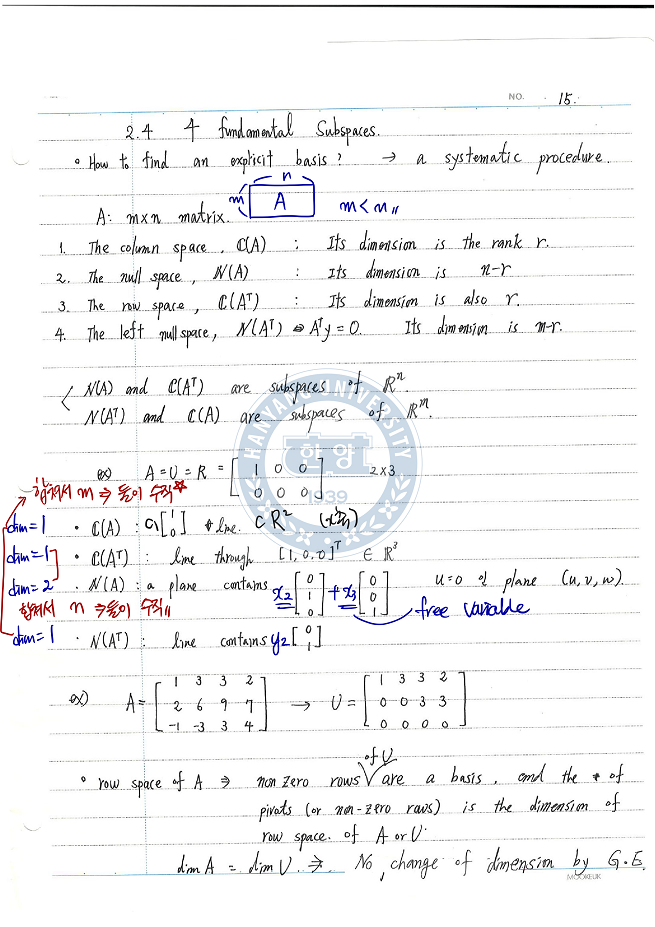 NO. 15.
2.4 4 fundamental Subspaces.
∘ How to find an explicit basis? → a systematic procedure.
n
m A m<n
A: m×n matrix.
1. The column space, C(A) : Its dimension is the rank r.
2. The null space, N(A) : Its dimension is n-r
3. The row space, C(Aᵀ) : Its dimension is also r.
4. The left nullspace, N(Aᵀ) ⇔ Aᵀy=0. Its dimension is m-r.
< N(A) and C(Aᵀ) are subspaces of Rⁿ.
N(Aᵀ) and C(A) are subspaces of Rᵐ.
HANYANG UNIVERSITY
한양
1939
ex) A=U=R = [1 0 0; 0 0 0] 2×3
합쳐서 m ⇒ 둘이 수직*
dim=1 · C(A) : [1; 0] line. ⊂ R²
dim=1 · C(Aᵀ) : line through [1,0,0]ᵀ ∈ R³
dim=2 · N(A) : a plane contains x₂[0; 1; 0] + x₃[0; 0; 1] u=0 인 plane (u,v,w).
합쳐서 n ⇒ 둘이 수직 free variable
dim=1 · N(Aᵀ) : line contains y₂[0; 1]
ex) A= [1 3 3 2; 2 6 9 7; -1 -3 3 4] → U= [1 3 3 2; 0 0 3 3; 0 0 0 0]
∘ row space of A ⇒ non zero rows of U are a basis, and the # of
pivots (or non-zero rows) is the dimension of
row space of A or U.
dim A = dim U ⇒ No change of dimension by G.E.
MOOKEUK